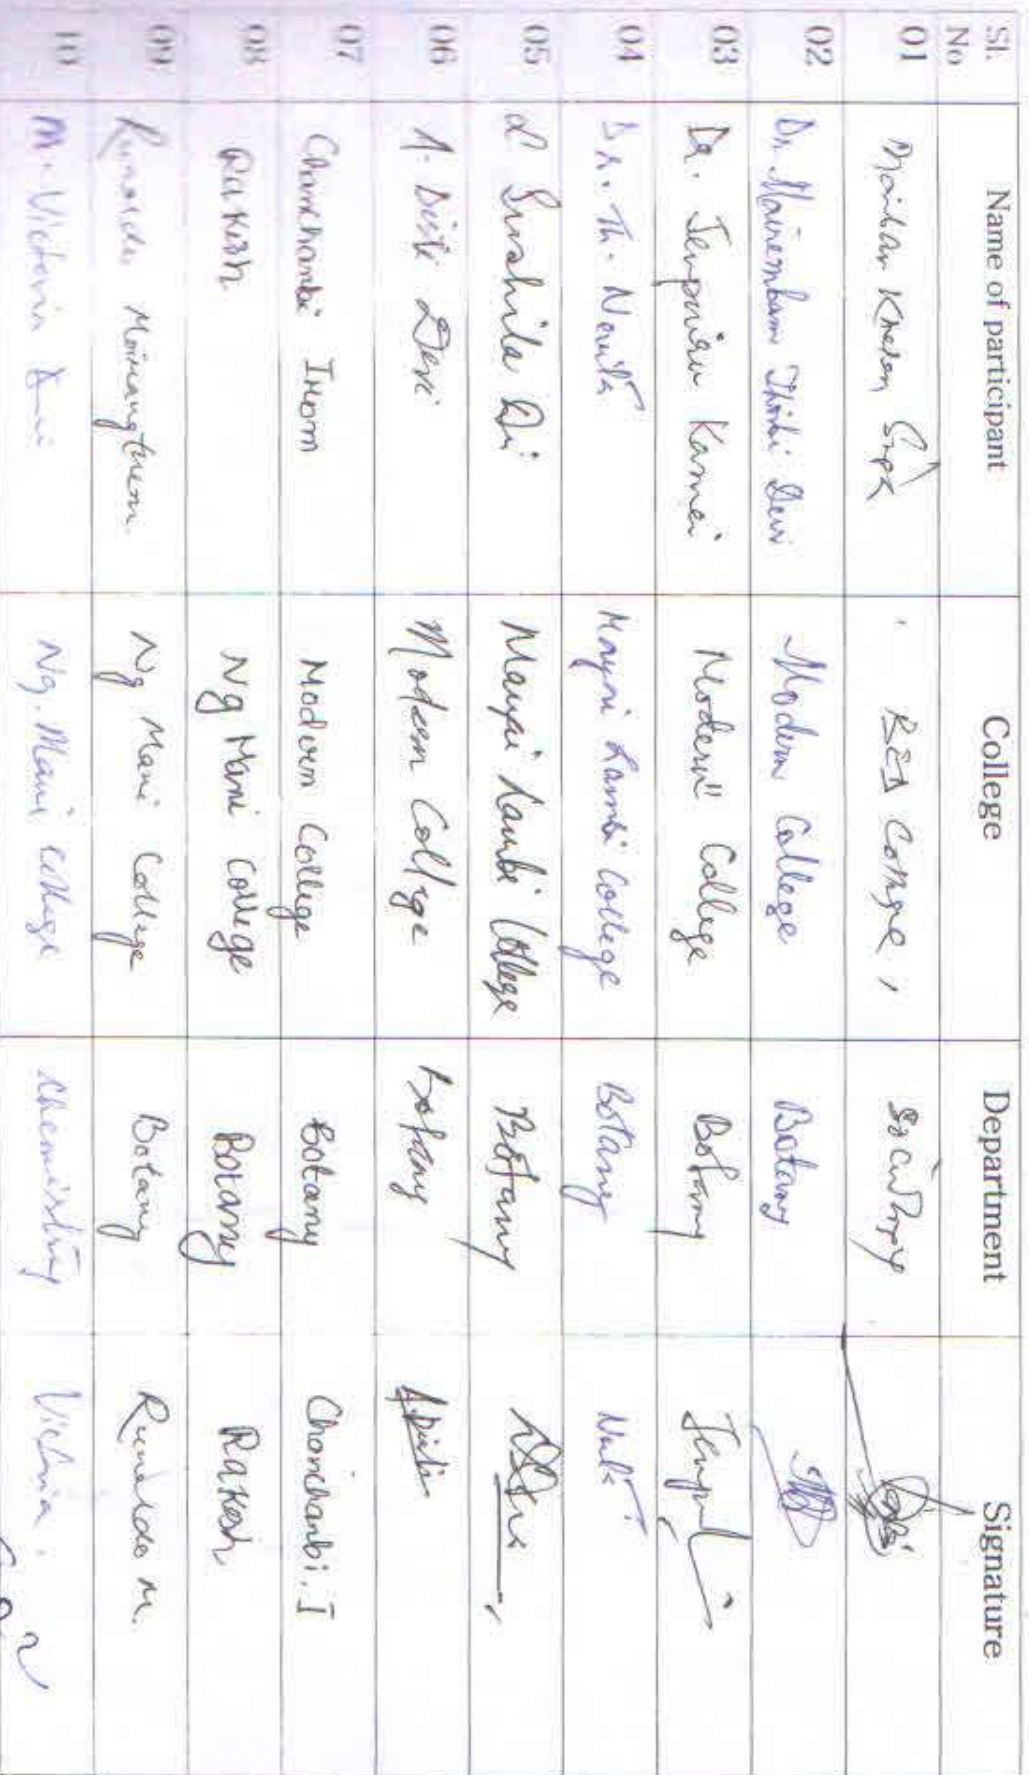 Sl. No Name of participant College Department Signature
01 Khelen
02 Dr. Mairembam Thoibi Devi Modern College Botany
03 Dr. Jenpuiru Kamei Modern College Botany
04 Dr. Th. Mayai Lambi College Botany
05 L Sushila Devi Mayai Lambi College Botany
06 A. Devi Modern College Botany
07 Chanchanbi Irom Modern College Botany Chanchanbi. I
08 Rakesh Ng Mani College Botany Rakesh
09 Runaldo Moirangthem. Ng Mani College Botany Runaldo M.
10 M. Victoria Devi Ng. Mani College Chemistry Victoria.